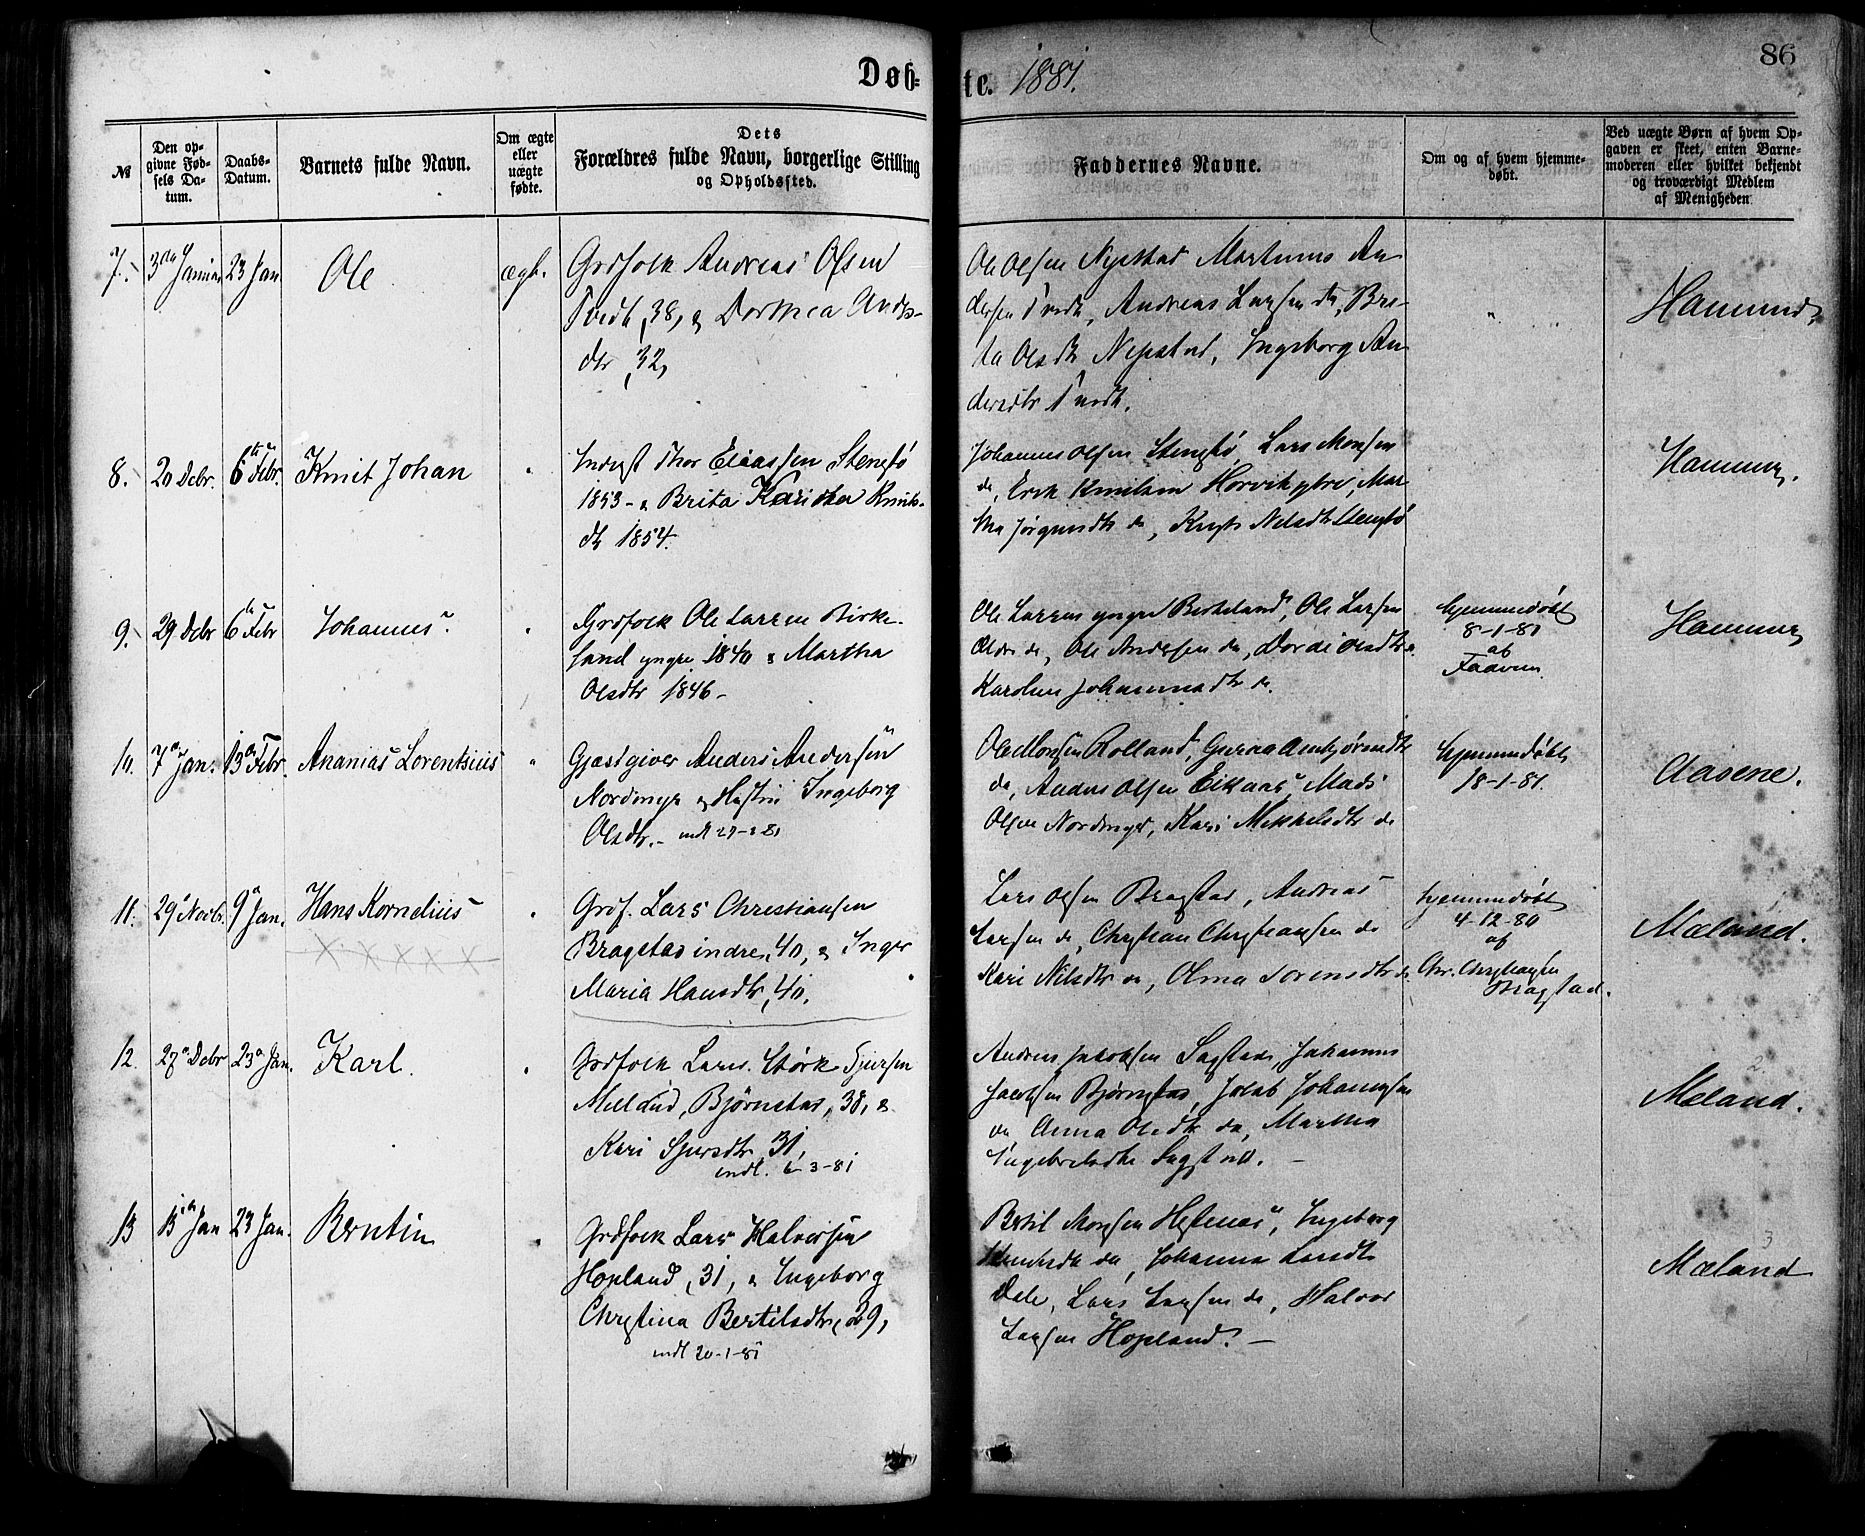 Døb-
te. 1881.
86
№
Den op-
givne Fød-
sels Da-
tum.
Daabs-
Datum.
Barnets fulde Navn.
Om ægte
eller
uægte
fødte.
Dets
Forældres fulde Navn, borgerlige Stilling
og Opholdssted.
Faddernes Navne.
Om og af hvem hjemme-
døbt.
Ved uægte Børn af hvem Op-
gaven er skeet, enten Barne-
moderen eller hvilket bekjendt
og troværdigt Medlem
af Menigheden
7. 3die Januar 23 Jan Ole ægt. Grdfolk Andreas Olsen
Tvedt, 38, & Dorthea Anders-
dtr, 32,
Ole Olsen Nipstad Martinus An-
dersen Tvedt, Andreas Larsen do, Bri-
ta Olsdtr Nipstad, Ingeborg An-
dersdtr Tvedt.
Hammer,
8. 20 Debr. 6te Febr. Knut Johan Indergst Thor Eliassen Stengbø
1853 - & Brita Knuts-
dtr 1854.
Johannes Olsen Stengbø Lars Monsen
do, Erik Knutsen Horvik, Mar-
tha do, Nilsdtr Stengbø
Hammer.
9. 29 Debr 6te Febr Johannes Grdfolk Ole Larsen Birke-
land yngre 1840 & Martha
Olsdtr 1846 -
Ole Larsen yngre Birkeland, Ole Larsen
Ældre do, Ole Andersen do, Dordi Olsdtr do
Karoline Johannesdtr do.
hjemmedøbt
8-1-81
af
Faderen.
Hammer
10. 7de Jan. 13de Febr. Ananias Lorentsius Gjæstgiver Anders Andersen
Nordinge & Hustru Ingeborg
Olsdtr. - indl 27-2-81
Ole Monsen Rolland, Gurina
do, Anders Olsen Eikaas Mads
Olsen Nordinge, Kari Mikkelsdtr do
hjemmedøbt
18-1-81.
Aasene.
11. 29 Novbr. 9de Jan. Hans Kornelius Grdf. Lars Christiansen
Bragstad indre, 40, & Inger
Maria Hansdtr, 40.
Lars Olsen Bragstad, Andreas
Larsen do, Christian Christiansen do
Kari Nilsdtr do, Olina Sørensdtr do
hjemmedøbt
4-12-80
af
Chr. Christiansen
Bragstad.
Mæland.
12. 27de Debr 23de Jan. Karl. Grdfolk Lars Størk Sjursen
Melland, Bjørnstad, 38, &
Kari Sjursdtr 31,
indl. 6-3-81
Andreas Jakobsen Sagstad, Johannes
Jacobsen Bjørnstad, Jakob Johannesen
do, Anna Olsdtr do, Martha
Ingebretsdtr Sagstad. -
2
Mæland.
13 13de Jan 23 Jan. Berntin Grdfolk Lars Halvorsen
Hopland, 31, & Ingeborg
Christina Bertilsdtr, 29,
indl 20-1-81
Bertil Monsen Hestenæs, Ingeborg
do, Johanna Larsdtr
Dale, Lars Larsen do, Halvor
Larsen Hopland. -
3
Mæland